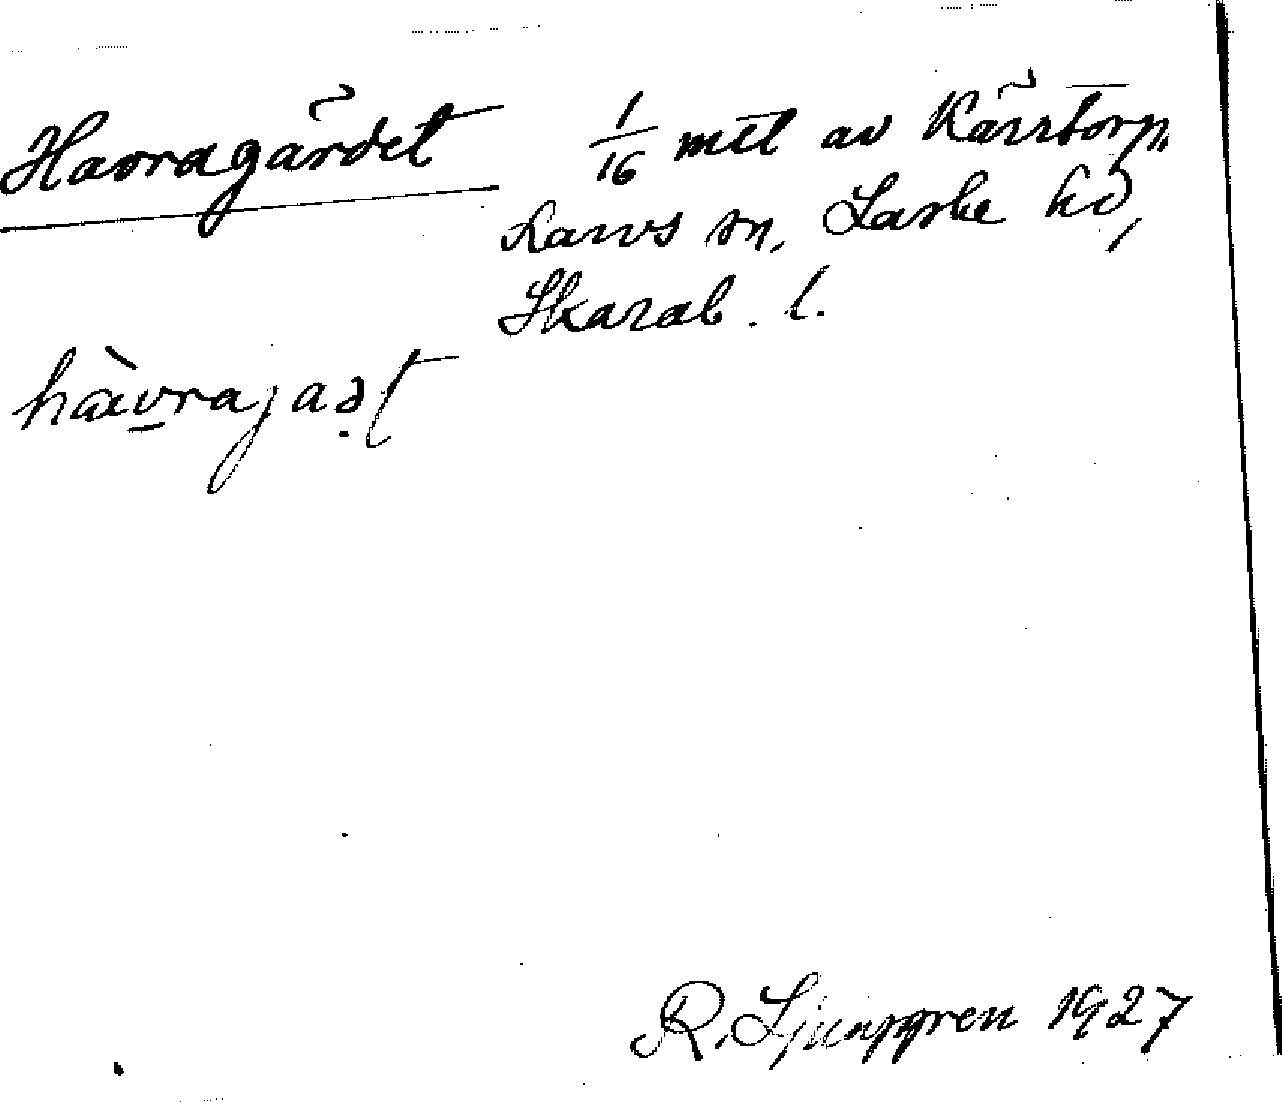 Havragärdet 1/16 mtl av Kärrtorp
Larvs sn, Laske hd,
Skarab. l.
hàvrajaṣt
R. Ljunggren 1927